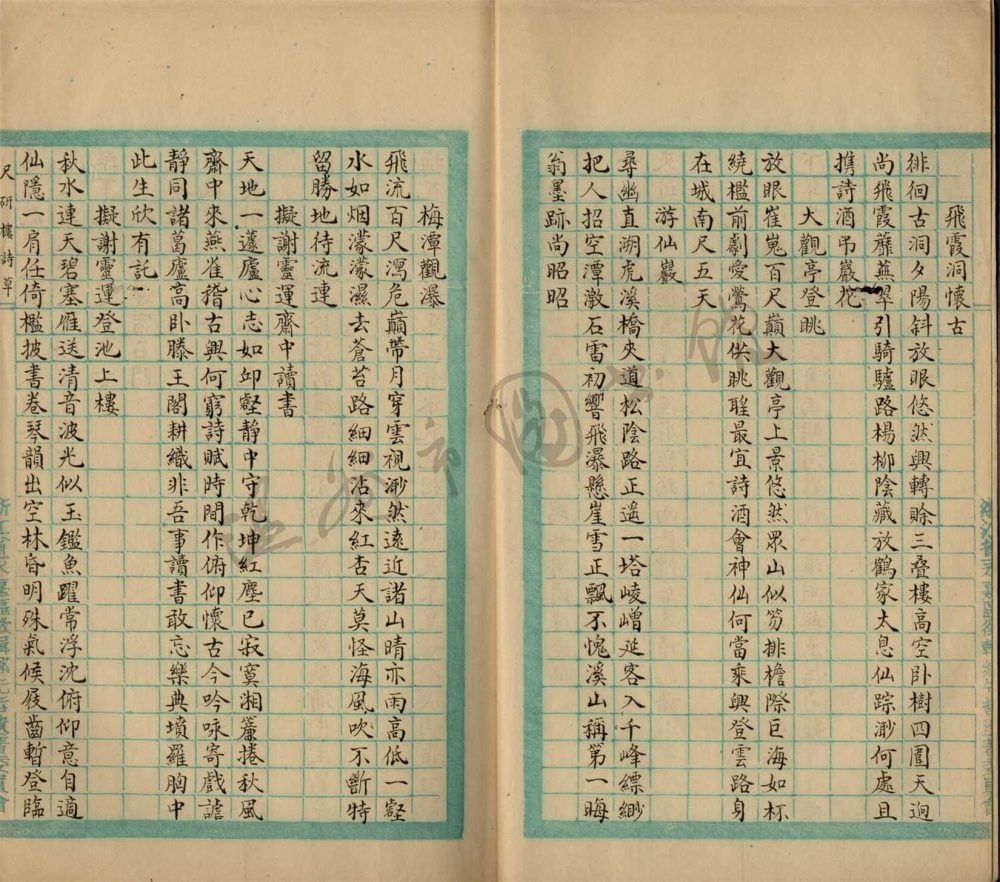 飛霞洞懷古
徘徊古洞夕陽斜放眼悠然興轉賒三叠樓高空卧樹四圍天迥
尚飛霞蘼蕪翠引騎驢路楊柳陰藏放鶴家太息仙踪渺何處且
携詩酒弔巖花
大觀亭登眺
放眼崔嵬百尺巔大觀亭上景悠然眾山似笏排檐際巨海如杯
繞檻前劇愛鶯花供眺聣最宜詩酒會神仙何當乘興登雲路身
在城南尺五天
游仙巖
尋幽直溯虎溪橋夾道松陰路正遥一塔崚嶒延客入千峰縹緲
把人招空潭激石雷初響飛瀑懸崖雪正飄不愧溪山稱第一晦
翁墨跡尚昭昭
梅潭觀瀑
飛流百尺瀉危巔帶月穿雲視渺然遠近諸山晴亦雨高低一壑
水如烟濛濛濕去蒼苔路細細沾來紅杏天莫怪海風吹不斷特
留勝地待流連
擬謝靈運齋中讀書
天地一蘧廬心志如邱壑靜中守乾坤紅塵已寂寞湘簾捲秋風
齋中來燕雀稽古興何窮詩賦時間作俯仰懷古今吟咏寄戲謔
靜同諸葛廬高卧滕王閣耕織非吾事讀書敢忘樂典墳羅胸中
此生欣有託
擬謝靈運登池上樓
秋水連天碧塞雁送清音波光似玉鑑魚躍常浮沈俯仰意自適
仙隱一肩任倚檻披書卷琴韻出空林昏明殊氣候屐齒暫登臨
尺研樓詩草